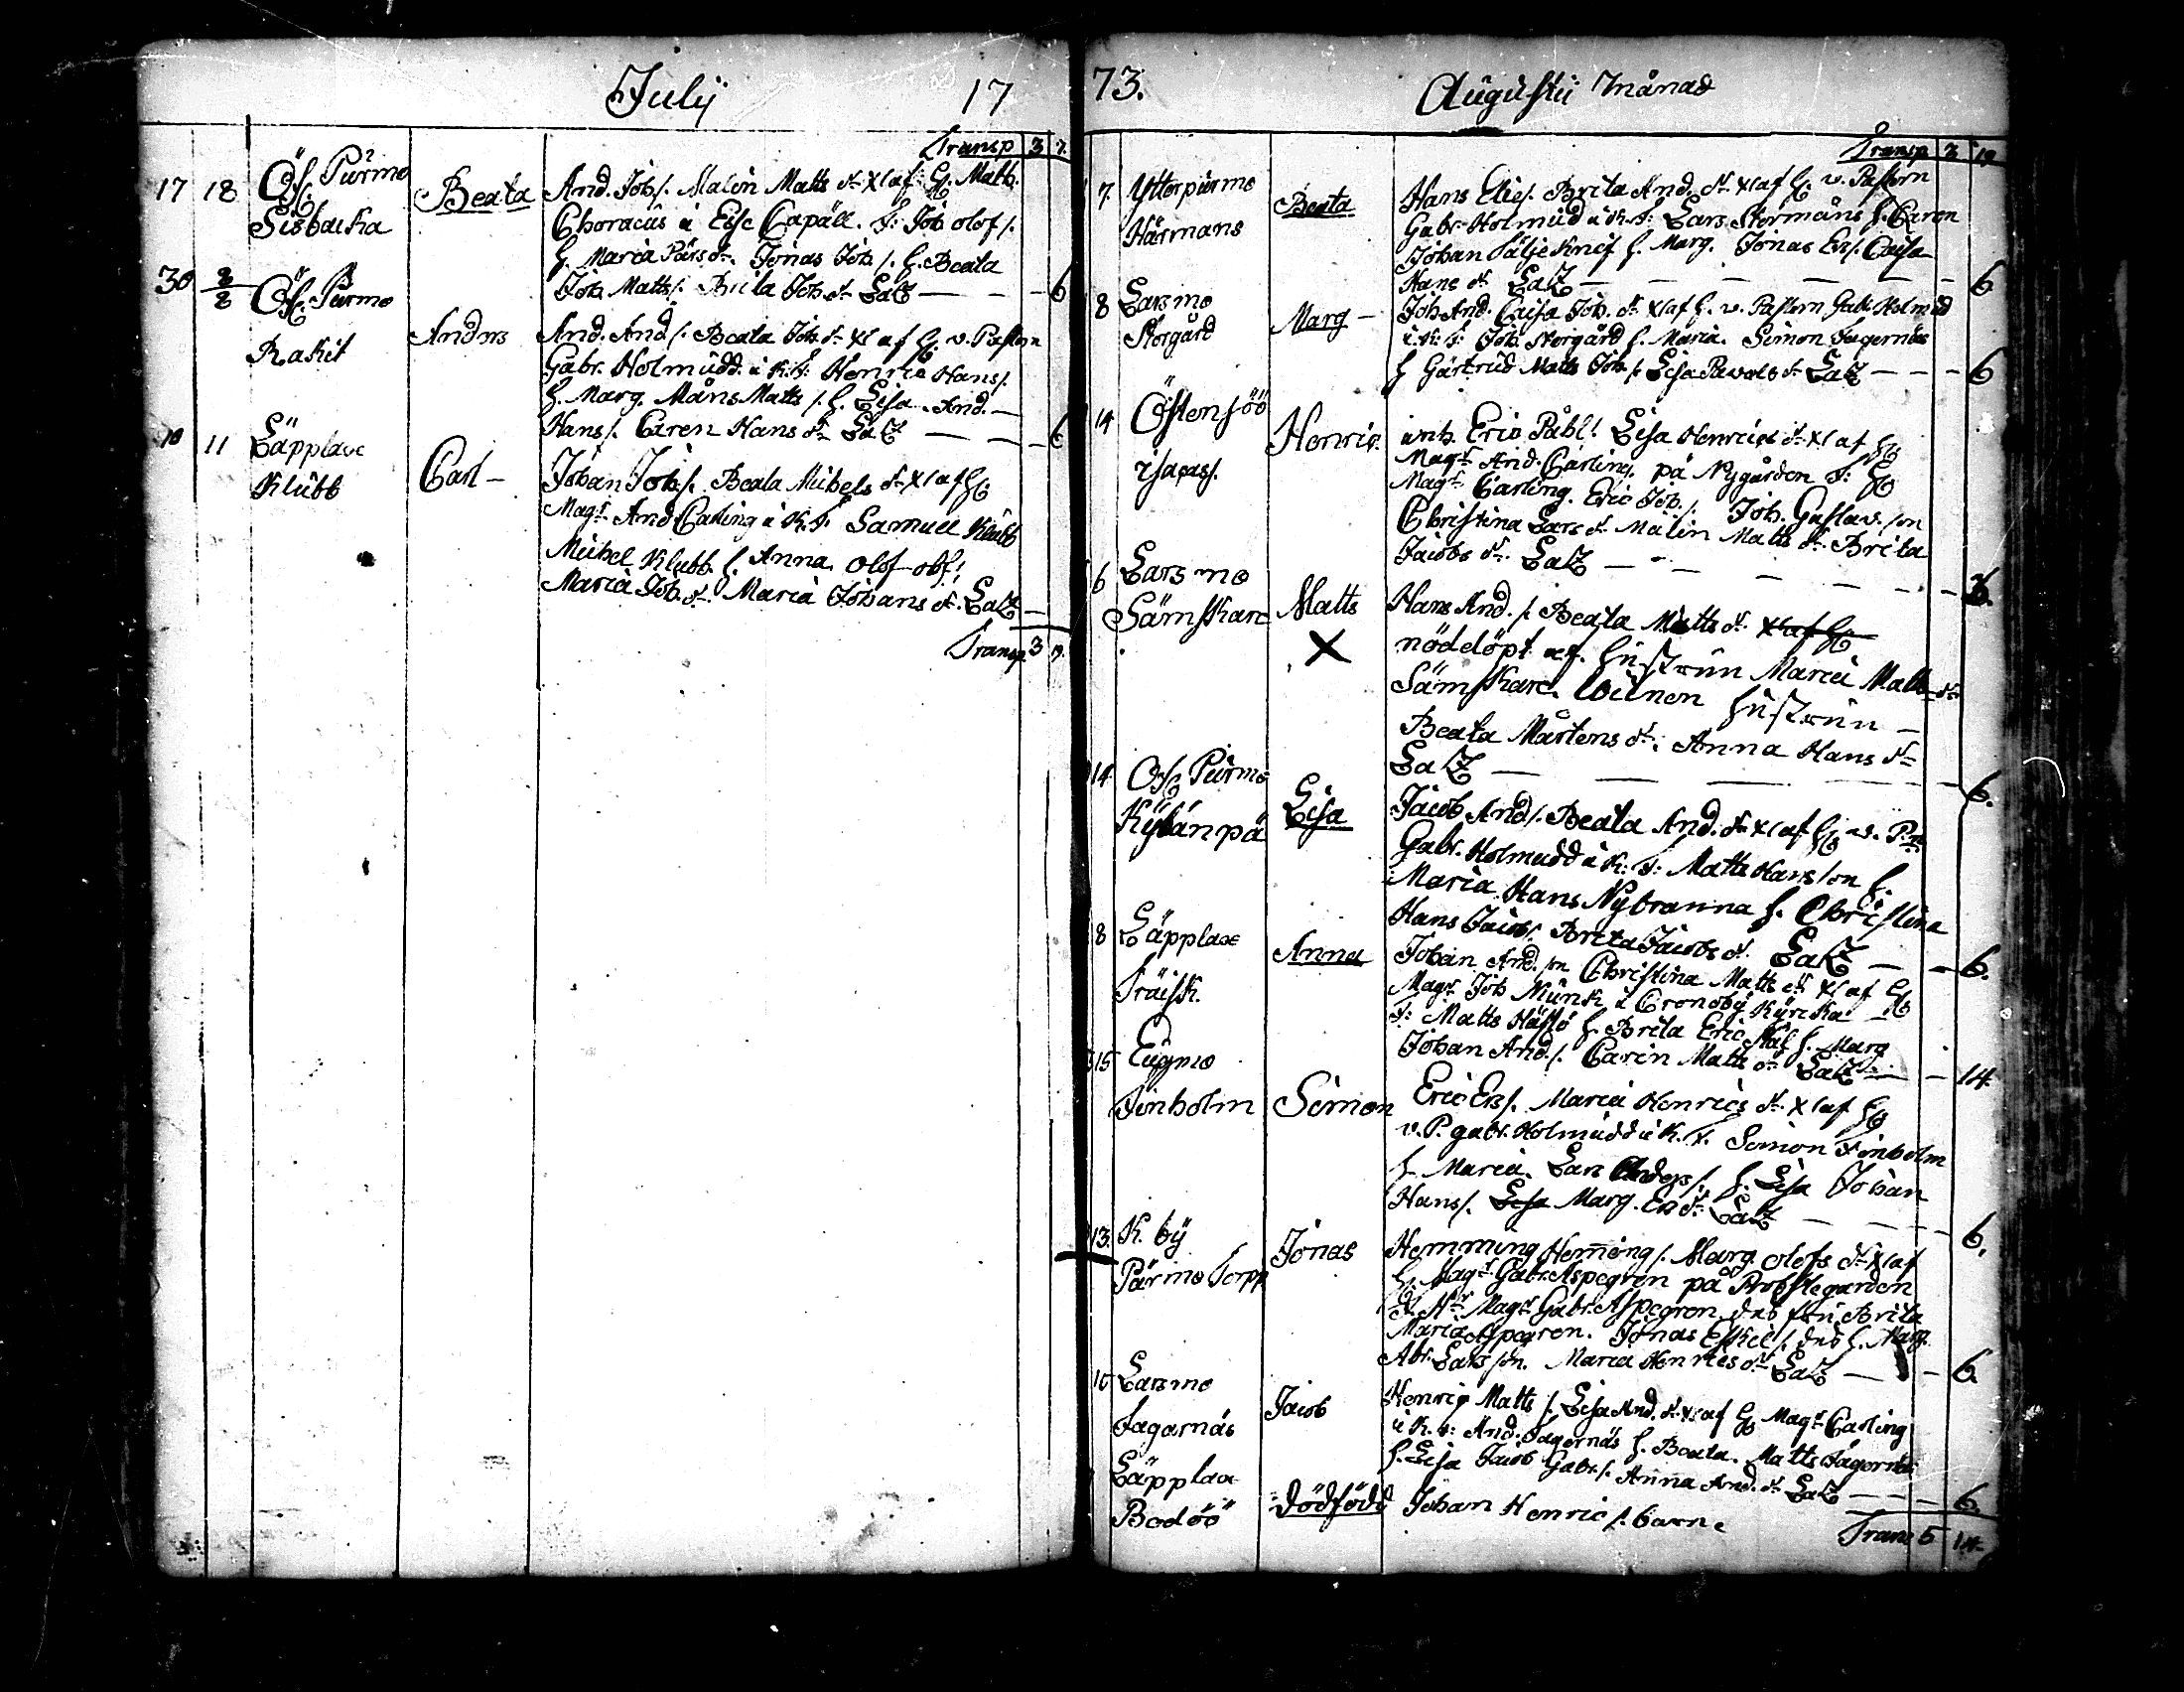 July 17
Transp 3 7.
17 18 Öf. Purmo
Sisbacka
Beata
And. Joh/. Malin Matts dr Xt af H. Math.
Choraeus i Esse Capäll. T: Joh olof/.
h. Maria Pärs dr. Jonas Joh/. h. Beata
Joh. Matts/. Brita Joh. dr LaZ — — 6
30 2/8 Öf. Purmo
Rakit
Anders
And. And/. Beata Joh. dr Xt af H. v. Pastorn
Gabr. Holmudd i K. T: Henric Hans/.
h. Marg. Måns Matts/. h. Lisa. And. —
Hans/. Caren Hans dr LaZ — — 6
10 11 Läpplax
Klubb
Carl —
Johan Joh/. Beata Michels dr Xt af H.
Magr And. Carling i K. T. Samuel Klubb
Michel Klubb h. Anna. Olof olof/.
Maria Joh. dr. Maria Johans dr. LaZ —
Transp 3 19.
73. Augusti Månad
Transp 3 19
7. Ytterpurmo
Härmans
Beata
Hans Elie/. Brita And. dr Xt af H. v. Pastorn
Gabr. Holmud i K. T: Lars Normåns h. Caren
Johan Säljeknif h. Marg. Jonas Ers/. Caisa
Hans dr LaZ — — — 6
8 Larsmo
Storgård
Marg —
Joh. And. Caisa Joh. dr Xt af H. v. Pastorn Gabr. Holmud
i K. T: Joh. Norgård h. Maria. Simon Fagernäs
h Gärtrud Matts Joh/. Lisa Pavals dr LaZ — — 6
14 Östensöö
isacas/.
Henric.
Eric Påhl/. Lisa Henrics dr Xt af H
Magr And. Carling. på Nygården T: H
Magr Carling. Eric Joh/. Joh. Gustav. son
Christina Lars dr Malin Matts dr. Brita
Jacobs dr. LaZ — — — 6.
6 Larsmo
Sämskare
Matts
X
Hans And./. Beata Matts dr. Xt af H
nöddöpt af. hustrun Maria Matts dr
Sämskare. Witnen hustrun —
Beata Mårtens dr. Anna Hans dr
LaZ — — — 6.
14. Öf. Purmo
Kyhänpä
Lisa
Jacob And/. Beata And. dr Xt af H v. P.n
Gabr. Holmudd i K: T: Matts Hansson h.
Maria Hans Nybranna h. Christina
Hans Jacobs/. Brita Jacobs dr. LaZ — — 6.
8 Läpplax
Träisk.
Anna
Johan And. son Christina Matts dr Xt af H
Magr Joh Munk i Cronoby Kyrcka
T: Matts Hästö h. Brita Eric Stål h. Marg
Johan And/. Carin Matts dr LaZ — — 14
15 Eugmo
Finholm
Simon
Eric Ers/. Maria Henrics dr. Xt af H
v. P. gabr. Holmudd i K. T. Simon Finholm
h Maria. Lars Anders/. h. Lisa Johan
Hans/. Lisa Marg. Ers dr LaZ — — 6.
13. K. by
Pärmo Torpp
Jonas
Hemming Heming/. Marg. olofs dr Xt af
H. Magr Gabr. Aspegren på Probstegården
T. Hr Magr Gabr. Aspegren. dess fru Brita
Maria Aspegren. Jonas Eskiel/. dess h. Marg.
Abr. Larsson. Maria Henrics dr LaZ — — 6
10 Larsmo
Fagarnäs
Jacob
Henric Matts/. Lisa And. dr Xt af H Magr Carling
i K. T: And. Fagernäs h. Beata. Matts Fagernäs
h. Lisa Jacob Gabr/. Anna And. dr LaZ — — 6.
Läpplax
Bodöö
dödfödd
Johan Henric/. barn
Trans 5 14.